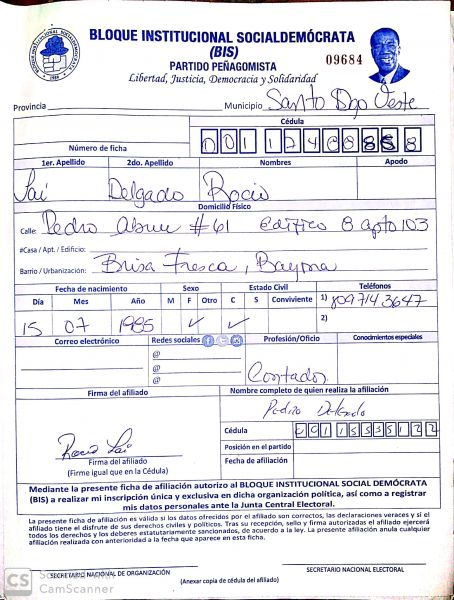 BLOQUE INSTITUCIONAL SOCIALDEMÓCRATA
(BIS)
PARTIDO PEÑAGOMISTA
09684
Libertad, Justicia, Democracia y Solidaridad
Provincia Municipio Santo Dgo Oeste
Cédula
Número de ficha
1er. Apellido 2do. Apellido Nombres Apodo
Sai Delgado Rocio
Domicilio Físico
Calle: Pedro Abreu #61 edifico 8 apto 103
#Casa / Apt. / Edificio:
Barrio / Urbanización: Brisa Fresca, Bayona
Fecha de nacimiento Sexo Estado Civil Teléfonos
Día Mes Año M F Otro C S Conviviente 1) 809 714 3647
15 07 1985 ✓ ✓ 2)
Correo electrónico Redes sociales Profesión/Oficio Conocimientos especiales
@
@
@
Contador
Firma del afiliado Nombre completo de quien realiza la afiliación
Pedro Delgado
Rocio Sai
Cédula
Posición en el partido
Firma del afiliado Fecha de afiliación
(Firme igual que en la Cédula)
Mediante la presente ficha de afiliación autorizo al BLOQUE INSTITUCIONAL SOCIAL DEMÓCRATA
(BIS) a realizar mi inscripción única y exclusiva en dicha organización política, así como a registrar
mis datos personales ante la Junta Central Electoral.
La presente ficha de afiliación es válida si los datos ofrecidos por el afiliado son correctos, las declaraciones veraces y si el
afiliado tiene el disfrute de sus derechos civiles y políticos. Tras su recepción, sello y firma autorizadas el afiliado ejercerá
todos los derechos y los deberes estatutariamente sancionados, de acuerdo a la ley. La presente afiliación anula cualquier
afiliación realizada con anterioridad a la fecha que aparece en esta ficha.
SECRETARIO NACIONAL DE ORGANIZACIÓN SECRETARIO NACIONAL ELECTORAL
(Anexar copia de cédula del afiliado)
CS
CamScanner